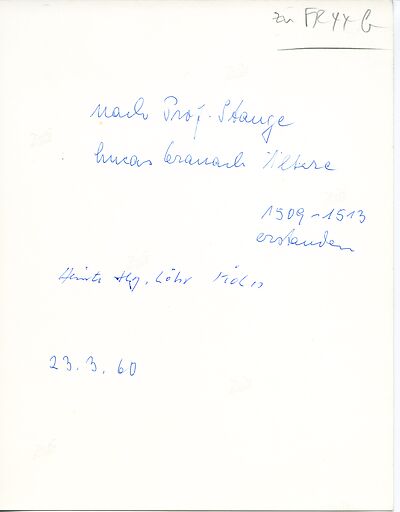 zu FR 44 G
nach Prof. Stange
Lucas Cranach Ältere
1509-1513
erstanden
Löhr Köln
23. 3. 60